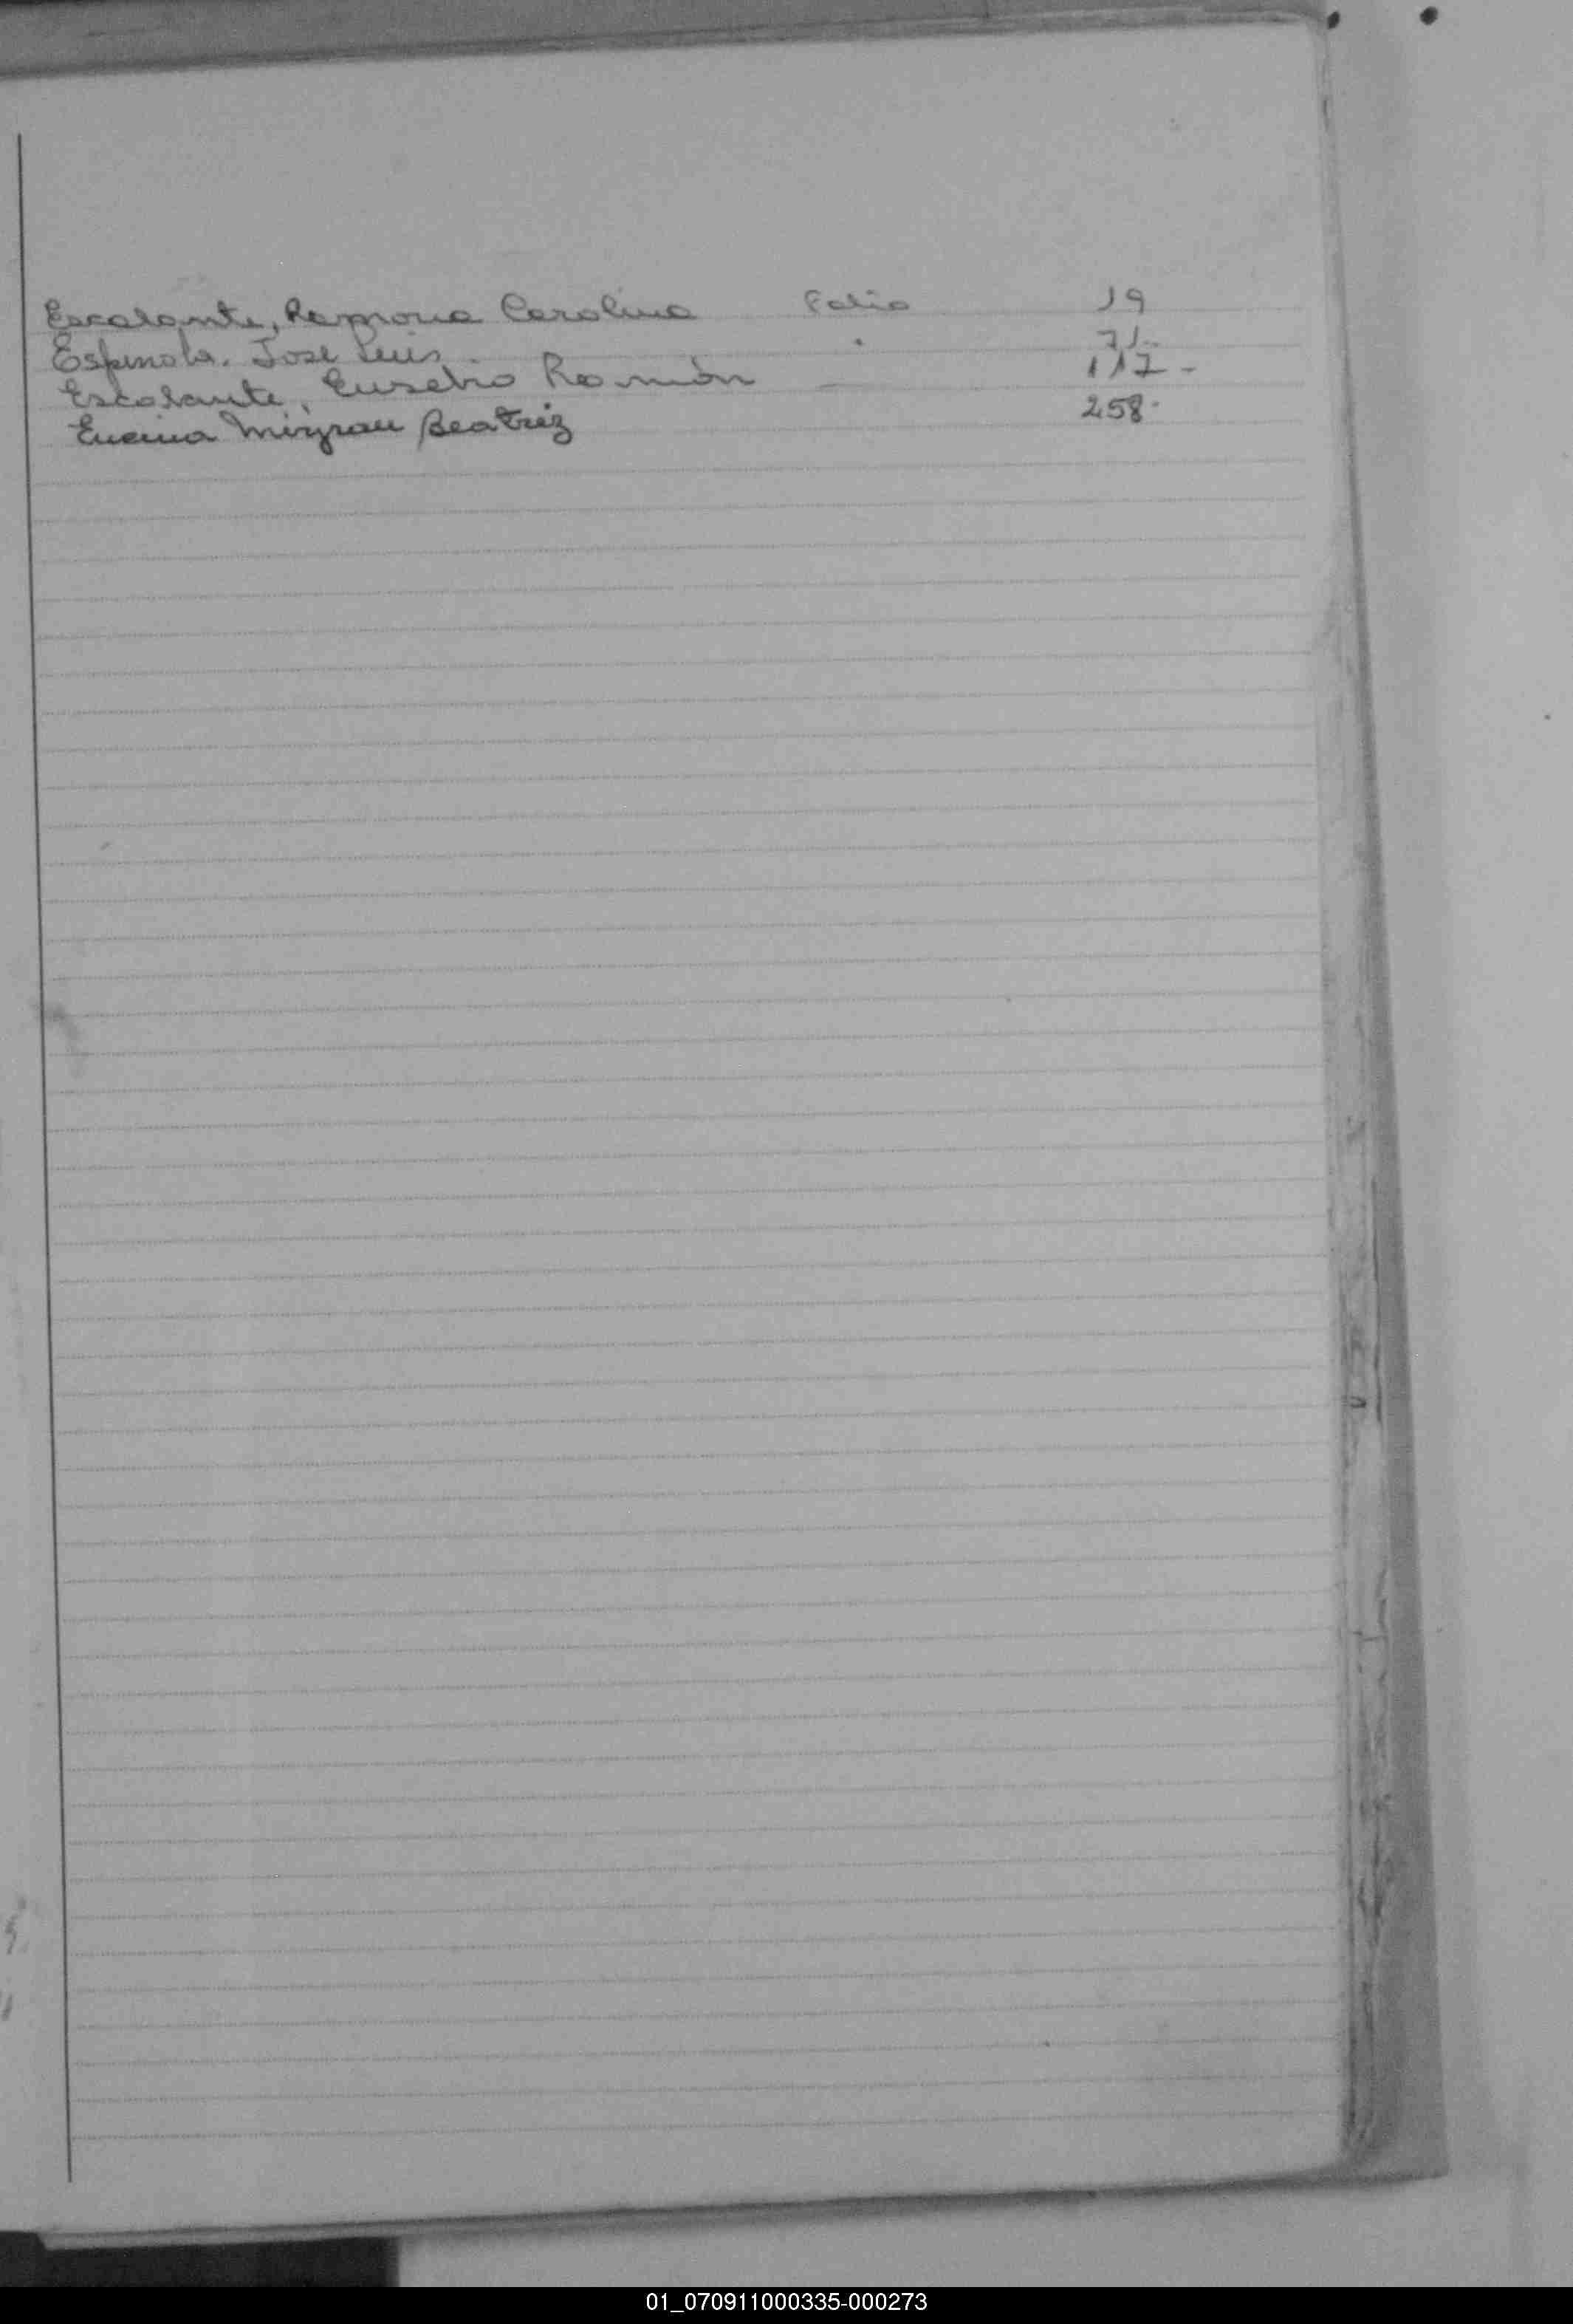 Escalante, Ramona Carolina Folio 19
Espinola. José Luis . 71.
Escalante, Eusebio Ramón — 117 -
Encina Beatriz 258.
01_070911000335-000273